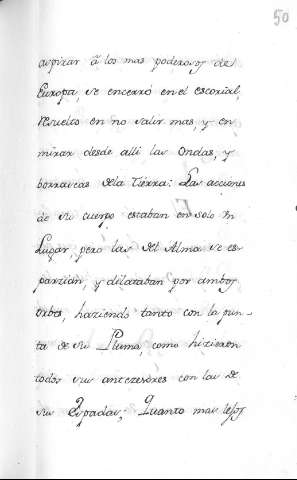 50
aspirar â los mas poderosos de
Europa, se encerró en el escorial,
resuelto en no salir mas, y en
mirar desde alli las Ondas, y
borrascas dela Tierra: Las acciones
de su cuerpo estaban en solo un
Lugar, pero las del Alma se es-
parzian, y dilataban por ambos
orbes, haziendo tanto con la pun-
ta de su Pluma, como hizieron
todos sus antezesores con las de
sus Espadas; Quanto mas lejos